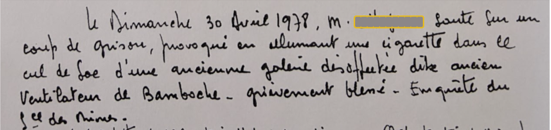 le Dimanche 30 Avril 1978, M. saute sur un
coup de grisou, provoqué en allumant une cigarette dans le
cul de sac d'une ancienne galerie désaffectée dite ancien
Ventilateur de Bamboche - grièvement blessé - Enquête du
Sce des Mines.